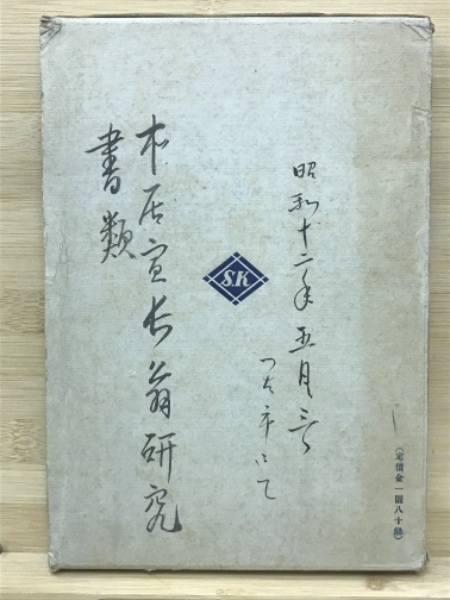 (定價金一圓八十錢)
昭和十二年五月三
市にて
SK
本居宣長翁研究
書類